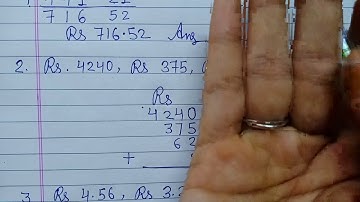 7 1 6 52
Rs 716.52 Ans
2. Rs. 4240, Rs 375,
Rs
4240
375
62
+
3. Rs 4.56, Rs 3.2